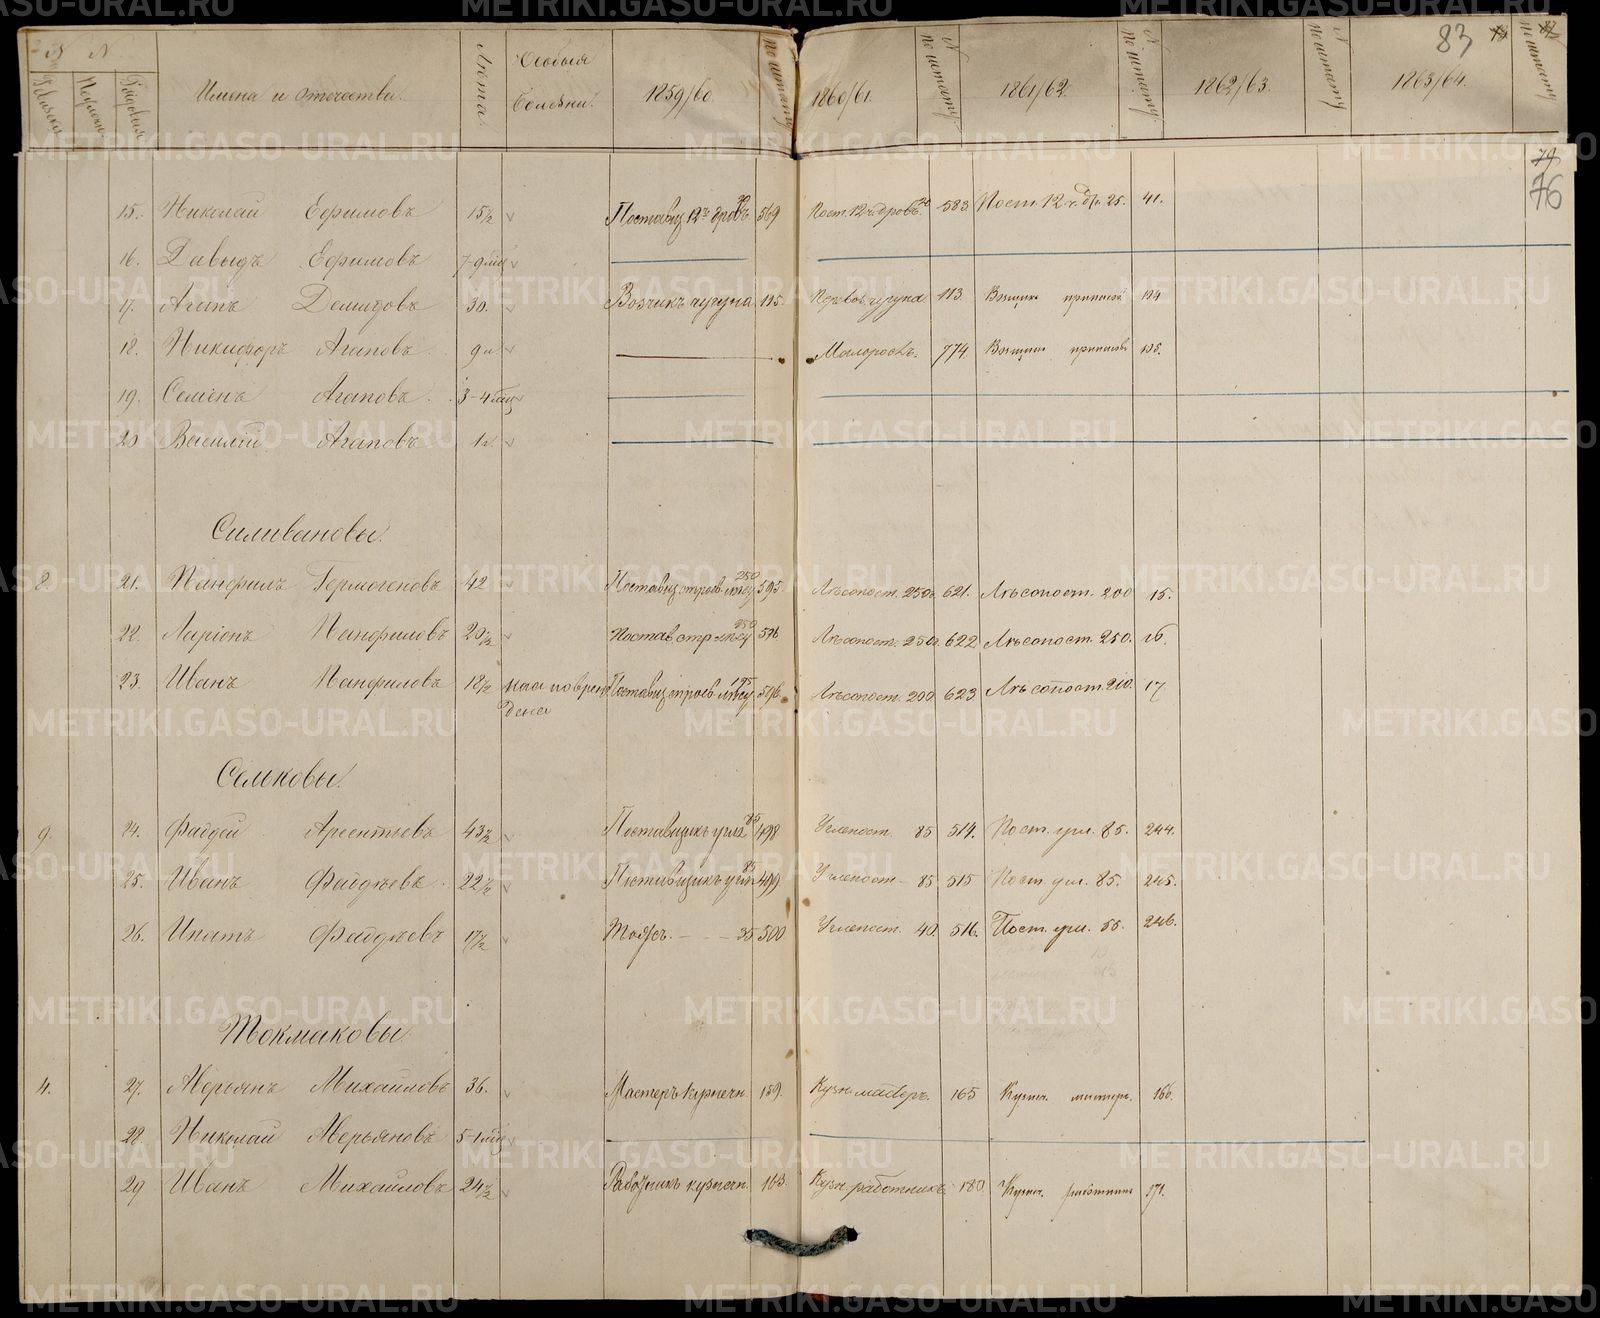 83
№ №
Имена и отечества.
Лѣта.
Особыя
болѣзни.
1859/60.
по штату
1860/61.
№ по штату
1861/62.
№ по штату
1862/63.
№ по штату
1863/64.
№ по штату
79
76
15. Николай Ефимовъ 15½ Поставщ. 12 ч. дровъ 569 Пост. 12 ч. дровъ. 583 Пост. 12 ч. др. 25. 41.
16. Давыдъ Ефимовъ 7-9 мѣц
17. Агапъ Демидовъ 30. Возчикъ чугуна 115. Перевоз. чугуна 113. 124
18. Никифоръ Агаповъ 9 Малоростъ. 774. 125.
19. Семенъ Агаповъ 3-4 мѣц
20 Василій Агаповъ 1
Силивановы.
8. 21. Панфилъ Гермогеновъ 42 Поставщ. строев. лѣсу 250 595. Лѣсопост. 250. 621. Лѣсопост. 200 15.
22. Ларіонъ Панфиловъ 20½ Постав. стр. лѣсу 250 596 Лѣсопост. 250. 622 Лѣсопост. 250. 16.
23. Иванъ Панфиловъ 18½ повреж Поставщ. строев. лѣсу 596. Лѣсопост. 200. 623 Лѣсопост. 210. 17.
дена
Сельковы.
9. 24. Фадѣй Арсентьевъ 43½ Поставщикъ угля 498 Углепост. 85 514. Пост. угл. 85. 244.
25. Иванъ Фадѣевъ. 22½ Поставщикъ угля 85 499 Углепост. 85 515 Пост. угл. 85. 245.
26. Ипатъ Фадѣевъ 17½ Тожъ. — — 35 500 Углепост. 40. 516. Пост. угл. 55. 246.
Токмаковы.
4. 27. Аверьянъ Михайловъ 36. Мастеръ кузнечн. 159. Кузн. мастеръ. 165 Кузнеч. мастеръ. 166.
28. Николай Аверьяновъ 5-1 мѣц
29 Иванъ Михайловъ 24½ Работникъ кузнечн. 163. Кузн. работникъ 180 Кузнеч. работникъ 171.
METRIKI.GASO-URAL.RU